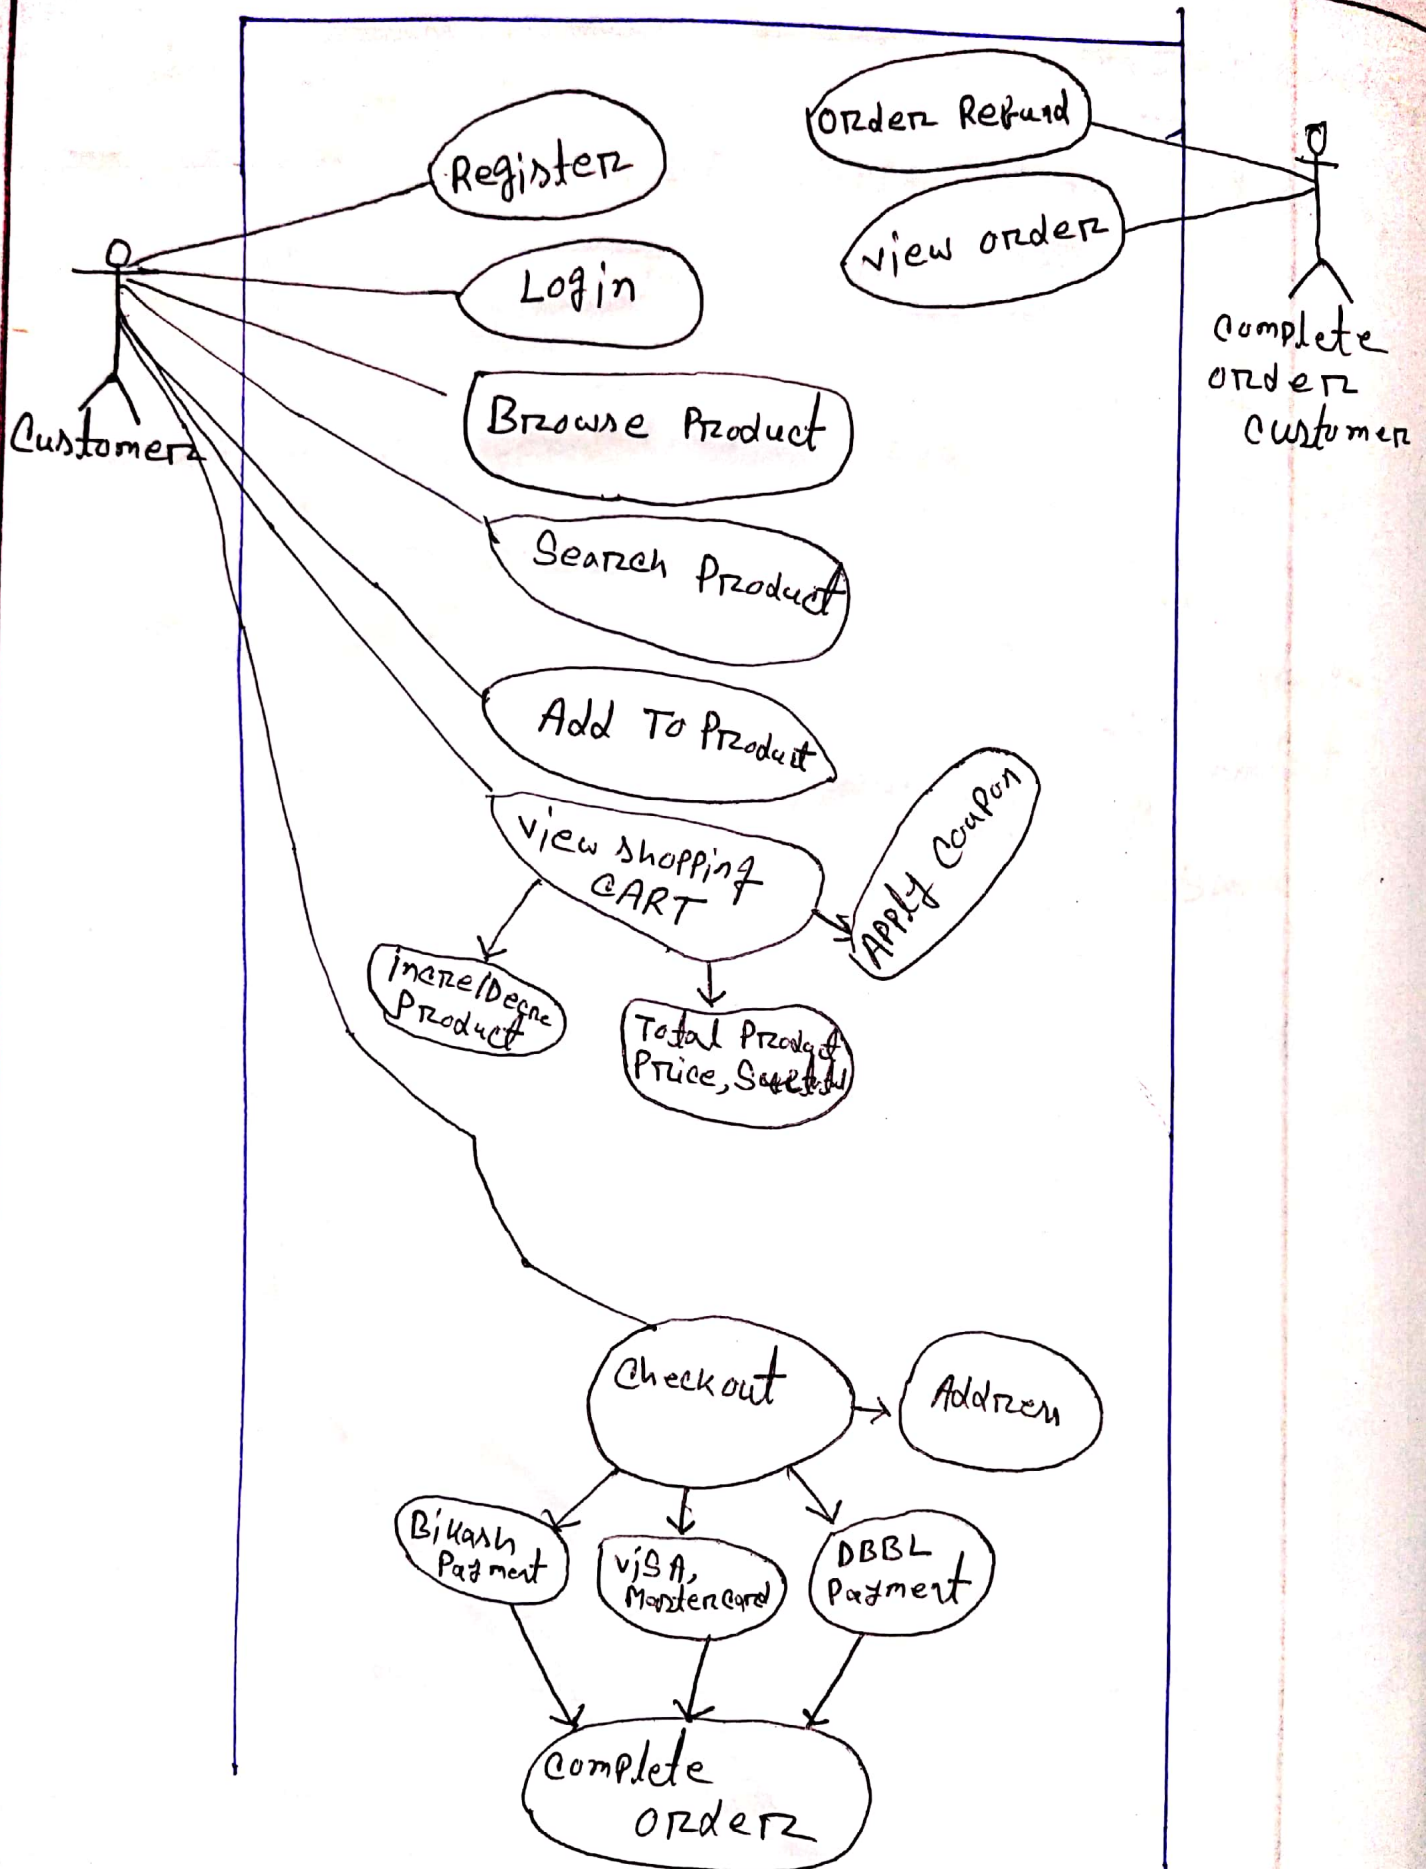 Register
Login
Browse Product
Search Product
Add To Product
view shopping
CART
Apply Coupon
incre/Decre
Product
Total Product
Price,
Customer
order Refund
view order
Complete
order
customer
Checkout
Address
Bikash
Payment
viSA,
Mastercard
DBBL
Payment
Complete
order